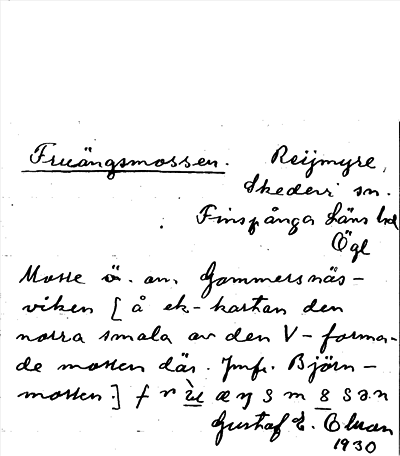 Fruängsmossen. Reijmyre,
Skedevi sn.
Finspånga läns hd
Ögl
Mosse ö. om Gammersnäs-
viken [å ek-kartan den
norra smala av den V-forma-
de mossen där. Jmf. Björn-
mossen.]
Gustaf E. Olsson
1930